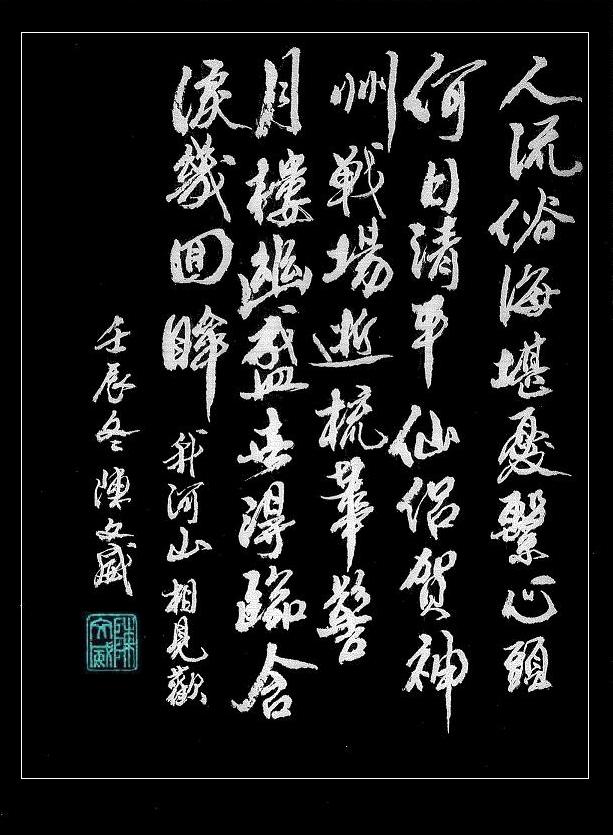 人流俗海堪憂繫心頭
何日清平仙侶賀神
州戰場逝梳華
月樓幽盛世得臨含
淚幾回眸 我河山相見歡
壬辰冬陳文威
陳文威